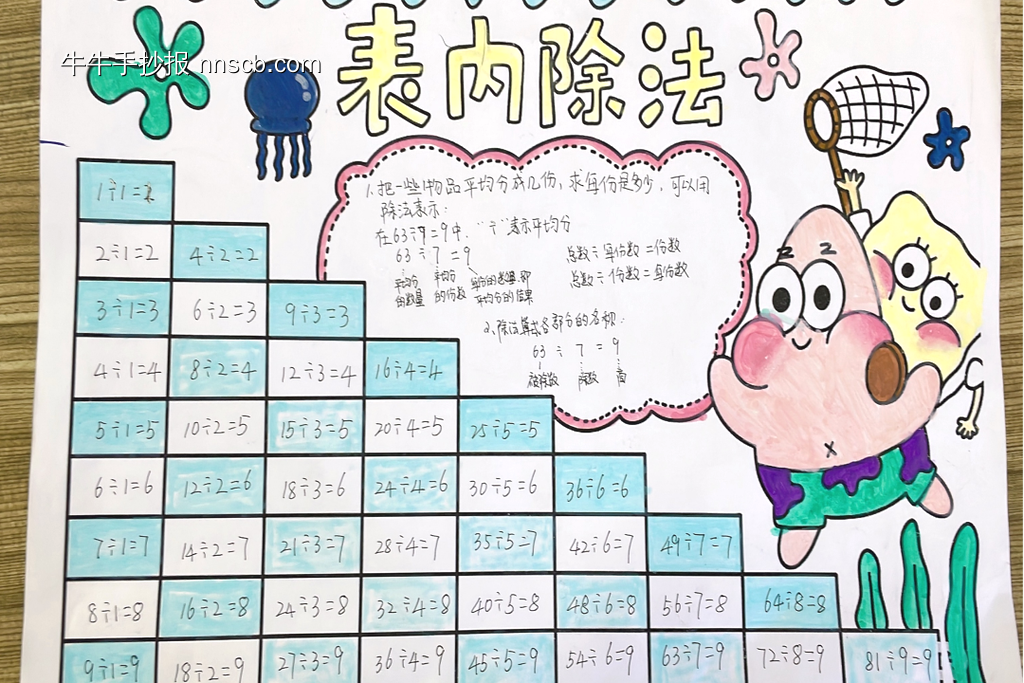 牛牛手抄报 nnscb.com
表内除法
1、把一些物品平均分成几份,求每份是多少,可以用
除法表示:
在63÷7=9中,“÷”表示平均分
63 ÷ 7 = 9
总数÷每份数=份数
总数÷份数=每份数
平均分 平均分 每份的数量,即
的数量 的份数 平均分的结果
2、除法算式各部分的名称:
63 ÷ 7 = 9
被除数 除数 商
1÷1=1
2÷1=2 4÷2=2
3÷1=3 6÷2=3 9÷3=3
4÷1=4 8÷2=4 12÷3=4 16÷4=4
5÷1=5 10÷2=5 15÷3=5 20÷4=5 25÷5=5
6÷1=6 12÷2=6 18÷3=6 24÷4=6 30÷5=6 36÷6=6
7÷1=7 14÷2=7 21÷3=7 28÷4=7 35÷5=7 42÷6=7 49÷7=7
8÷1=8 16÷2=8 24÷3=8 32÷4=8 40÷5=8 48÷6=8 56÷7=8 64÷8=8
9÷1=9 18÷2=9 27÷3=9 36÷4=9 45÷5=9 54÷6=9 63÷7=9 72÷8=9 81÷9=9